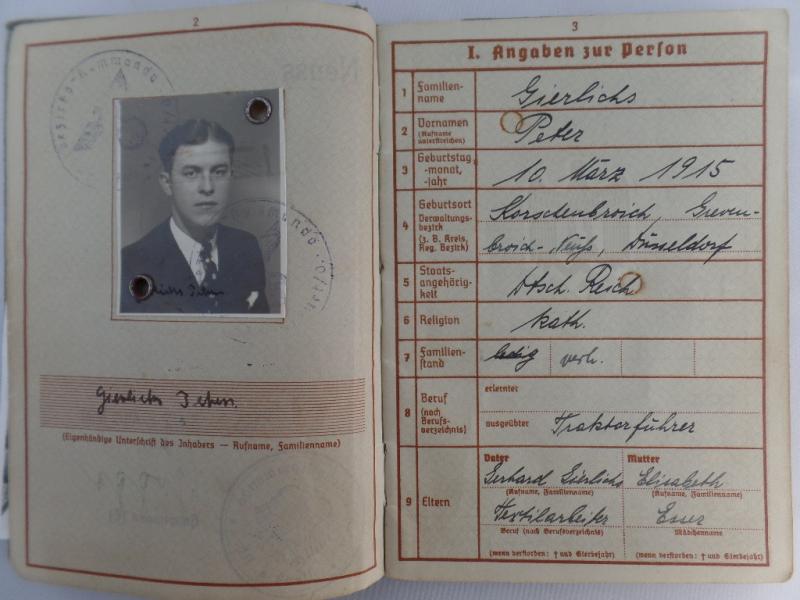 2
Bezirks-Kommando
Gierlichs Peter
(Eigenhändige Unterschrift des Inhabers — Rufname, Familienname)
3
I. Angaben zur Person
1 Familien-
name
Gierlichs
2 Vornamen
(Rufname
unterstreichen)
Peter
3 Geburtstag,
-monat,
-jahr
10. März 1915
4 Geburtsort
Verwaltungs-
bezirk
(z. B. Kreis,
Reg. Bezirk)
Korschenbroich, Greven-
broich-Neuß, Düsseldorf
5 Staats-
angehörig-
keit
Dtsch. Reich
6 Religion
kath.
7 Familien-
stand
ledig verh.
8 Beruf
(nach
Berufs-
verzeichnis)
erlernter
ausgeübter
Traktorführer
9 Eltern
Vater Mutter
Gerhard Gierlichs Elisabeth
(Rufname, Familienname) (Rufname, Familienname)
Textilarbeiter Esser
Beruf (nach Berufsverzeichnis) Mädchenname
(wenn verstorben: † und Sterbejahr) (wenn verstorben: † und Sterbejahr)